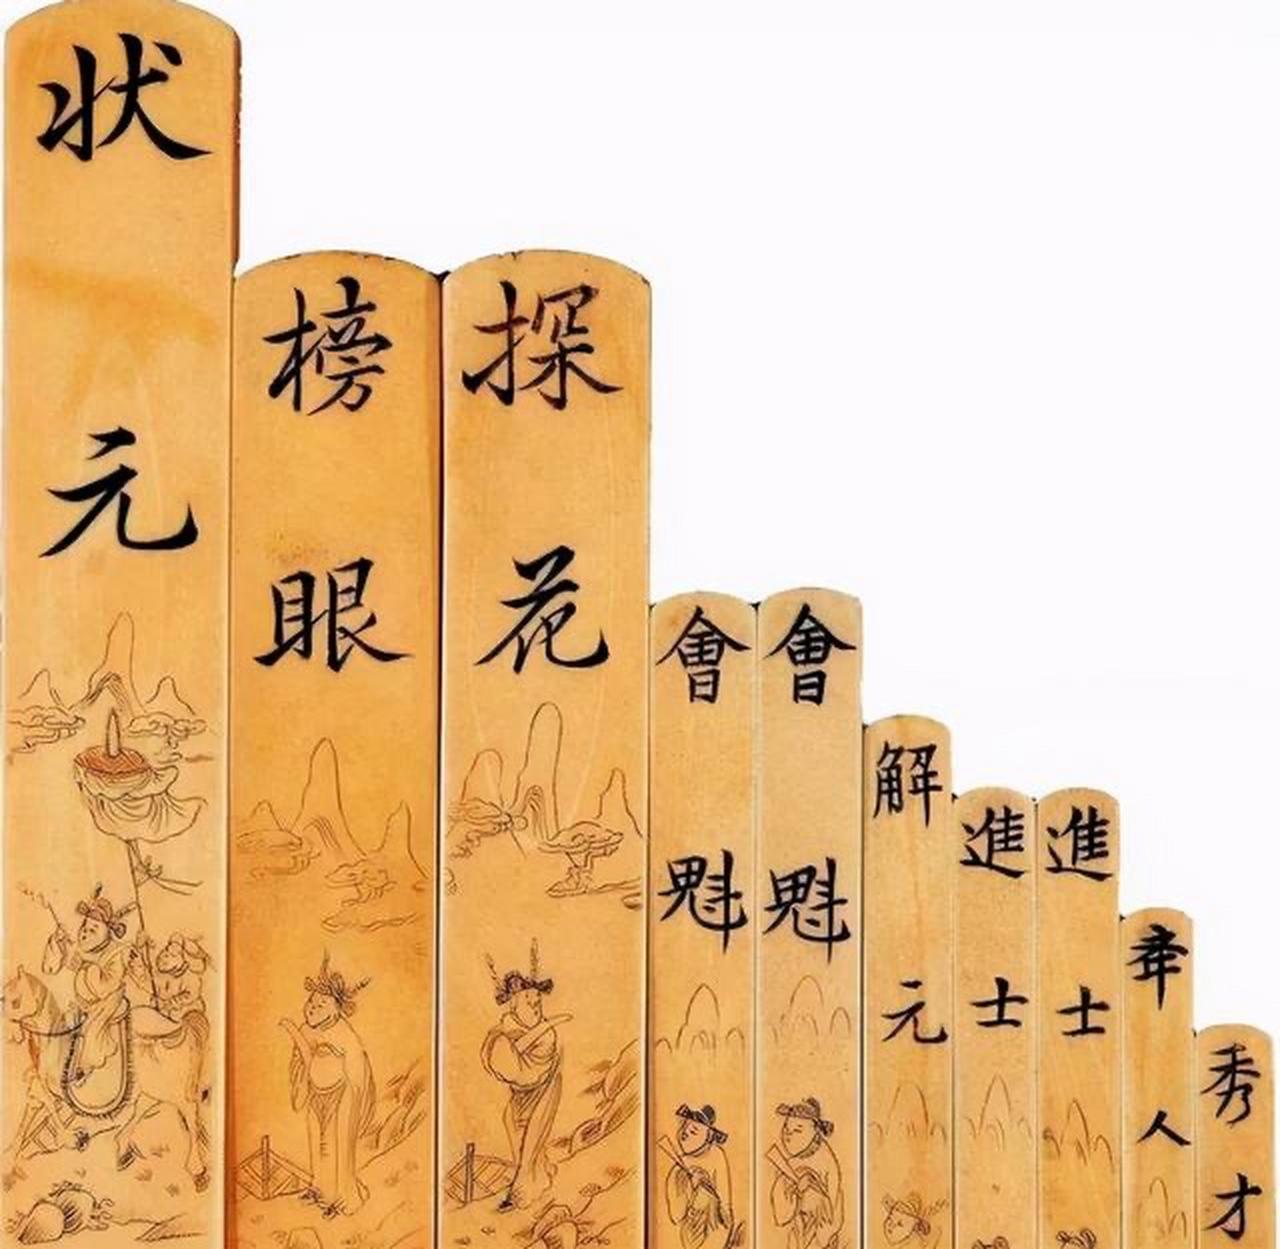 状元
榜眼
探花
會魁
會魁
解元
進士
進士
举人
秀才